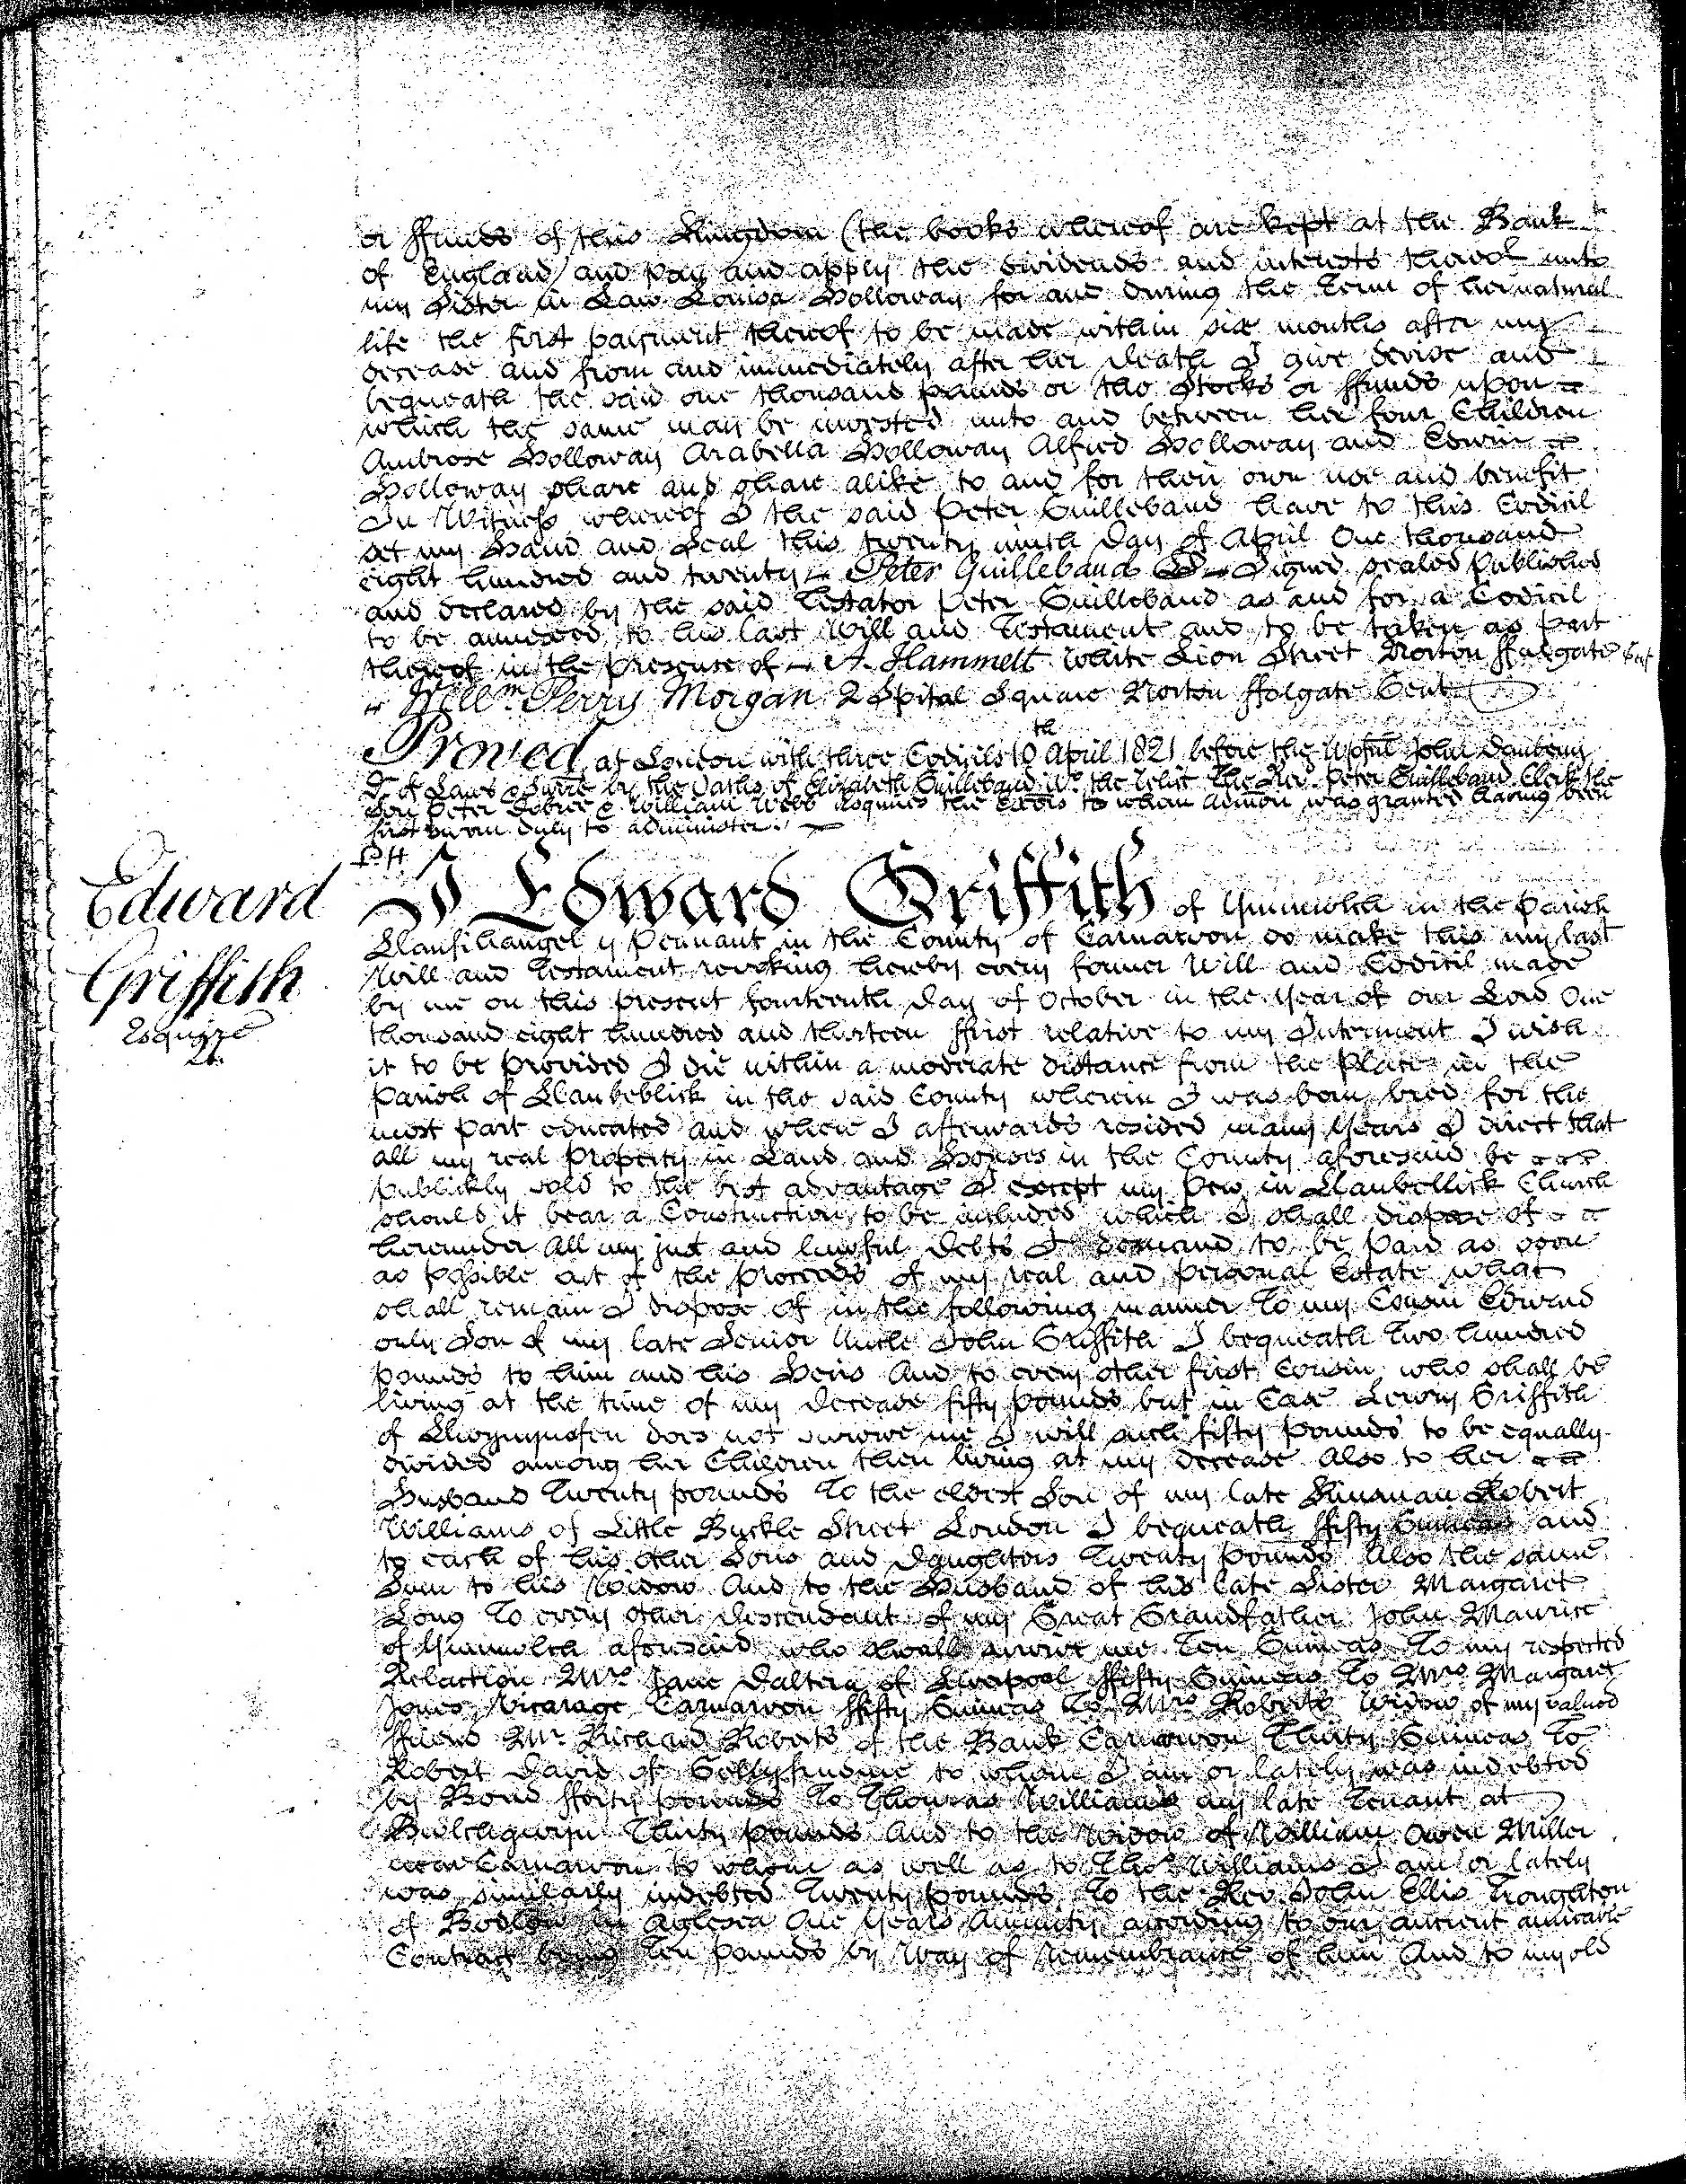 or ffunds of this Kingdom (the books whereof are kept at the Bank
of England) and pay and apply the dividends and interests thereof unto
my Sister in Law Louisa Holloway for and during the term of her natural
life the first payment thereof to be made within six months after my
decease and from and immediately after her death I give devise and
bequeath the said one thousand pounds or the Stocks or ffunds upon
which the same may be invested unto and between her four Children
Ambrose Holloway Arabella Holloway Alfred Holloway and Edwin
Holloway share and share alike to and for their own use and benefit
In Witness whereof I the said Peter Guillebaud have to this Codicil
set my Hand and Seal this twenty ninth day of April One thousand
eight hundred and twenty – Peter Guillebaud – Signed sealed published
and declared by the said Testator Peter Guillebaud as and for a Codicil
to be annexed to his last Will and Testament and to be taken as part
thereof in the presence of – A. Hammett White Lion Street Norton ffolgate
– Willm. Perry Morgan 2 Spital Square Norton ffolgate Gent
Proved at London with three Codicils 10th April 1821 before the Worpful John Daubeny
Dr. of Laws & Surre by the Oaths of Elizabeth Guillebaud Wo. the Relict The Revd. Peter Guillebaud Clerk the
Son Peter Debree & William Webb Esquires the Exors to whom Admon was granted having been
first sworn duly to administer.
P.H.
Edward
Griffith
Esquire
I Edward Griffith of Ynmwlch in the Parish
Llanfihangel y Pennant in the County of Carnarvon do make this my last
Will and Testament revoking hereby every former Will and Codicil made
by me on this present fourteenth day of October in the year of our Lord One
thousand eight hundred and thirteen ffirst relative to my Interment I wish
it to be provided I die within a moderate distance from the Place in the
Parish of Llanbeblick in the said County wherein I was born bred for the
most part educated and where I afterwards resided many Years I direct that
all my real Property in Land and Houses in the County aforesaid be
publickly sold to the best advantage I except my Pew in Llanbellick Church
should it bear a Construction to be included which I shall dispose of
hereunder All my just and lawful Debts I demand to be paid as soon
as possible out of the proceeds of my real and personal Estate what
shall remain I dispose of in the following manner To my Cousin Edward
only Son of my late Senior Uncle John Griffith I bequeath Two hundred
pounds to him and his Heirs And to every other first Cousin who shall be
living at the time of my decease fifty pounds but in Case Lewry Griffith
of does not survive me I will such fifty pounds to be equally
divided among her Children then living at my decease Also to her
Husband Twenty pounds To the eldest Son of my late Kinsman Robert
Williams of Little Buckle Street London I bequeath ffifty Guineas and
to each of his other Sons and Daughters Twenty pounds Also the same
Sum to his Widow And to the Husband of his late Sister Margaret
Long To every other Descendant of my Great Grandfather John Maurice
of Ynmwlch aforesaid who shall survive me Ten Guineas To my respected
Relaction Mrs. Jane Daltera of Liverpool ffifty Guineas To Mrs. Margaret
Jones Vicarage Carnarvon ffifty Guineas To Mrs. Roberts Widow of my valued
ffriend Mr. Richard Roberts of the Bank Carnarvon Thirty Guineas To
Robert David of to whom I am or lately was indebted
by Bond fforty pounds To Thomas Williams my late Tenant at
Bwlchgwyn Thirty pounds And to the Widow of William Owen Miller
near Carnarvon to whom as well as to Thos. Williams I am or lately
was similarly indebted Twenty pounds To the Rev. John Ellis Troughton
of in Aglesea One Years Annuity according to our ancient amicable
Contract being Ten pounds by Way of Remembrance of him And to my old